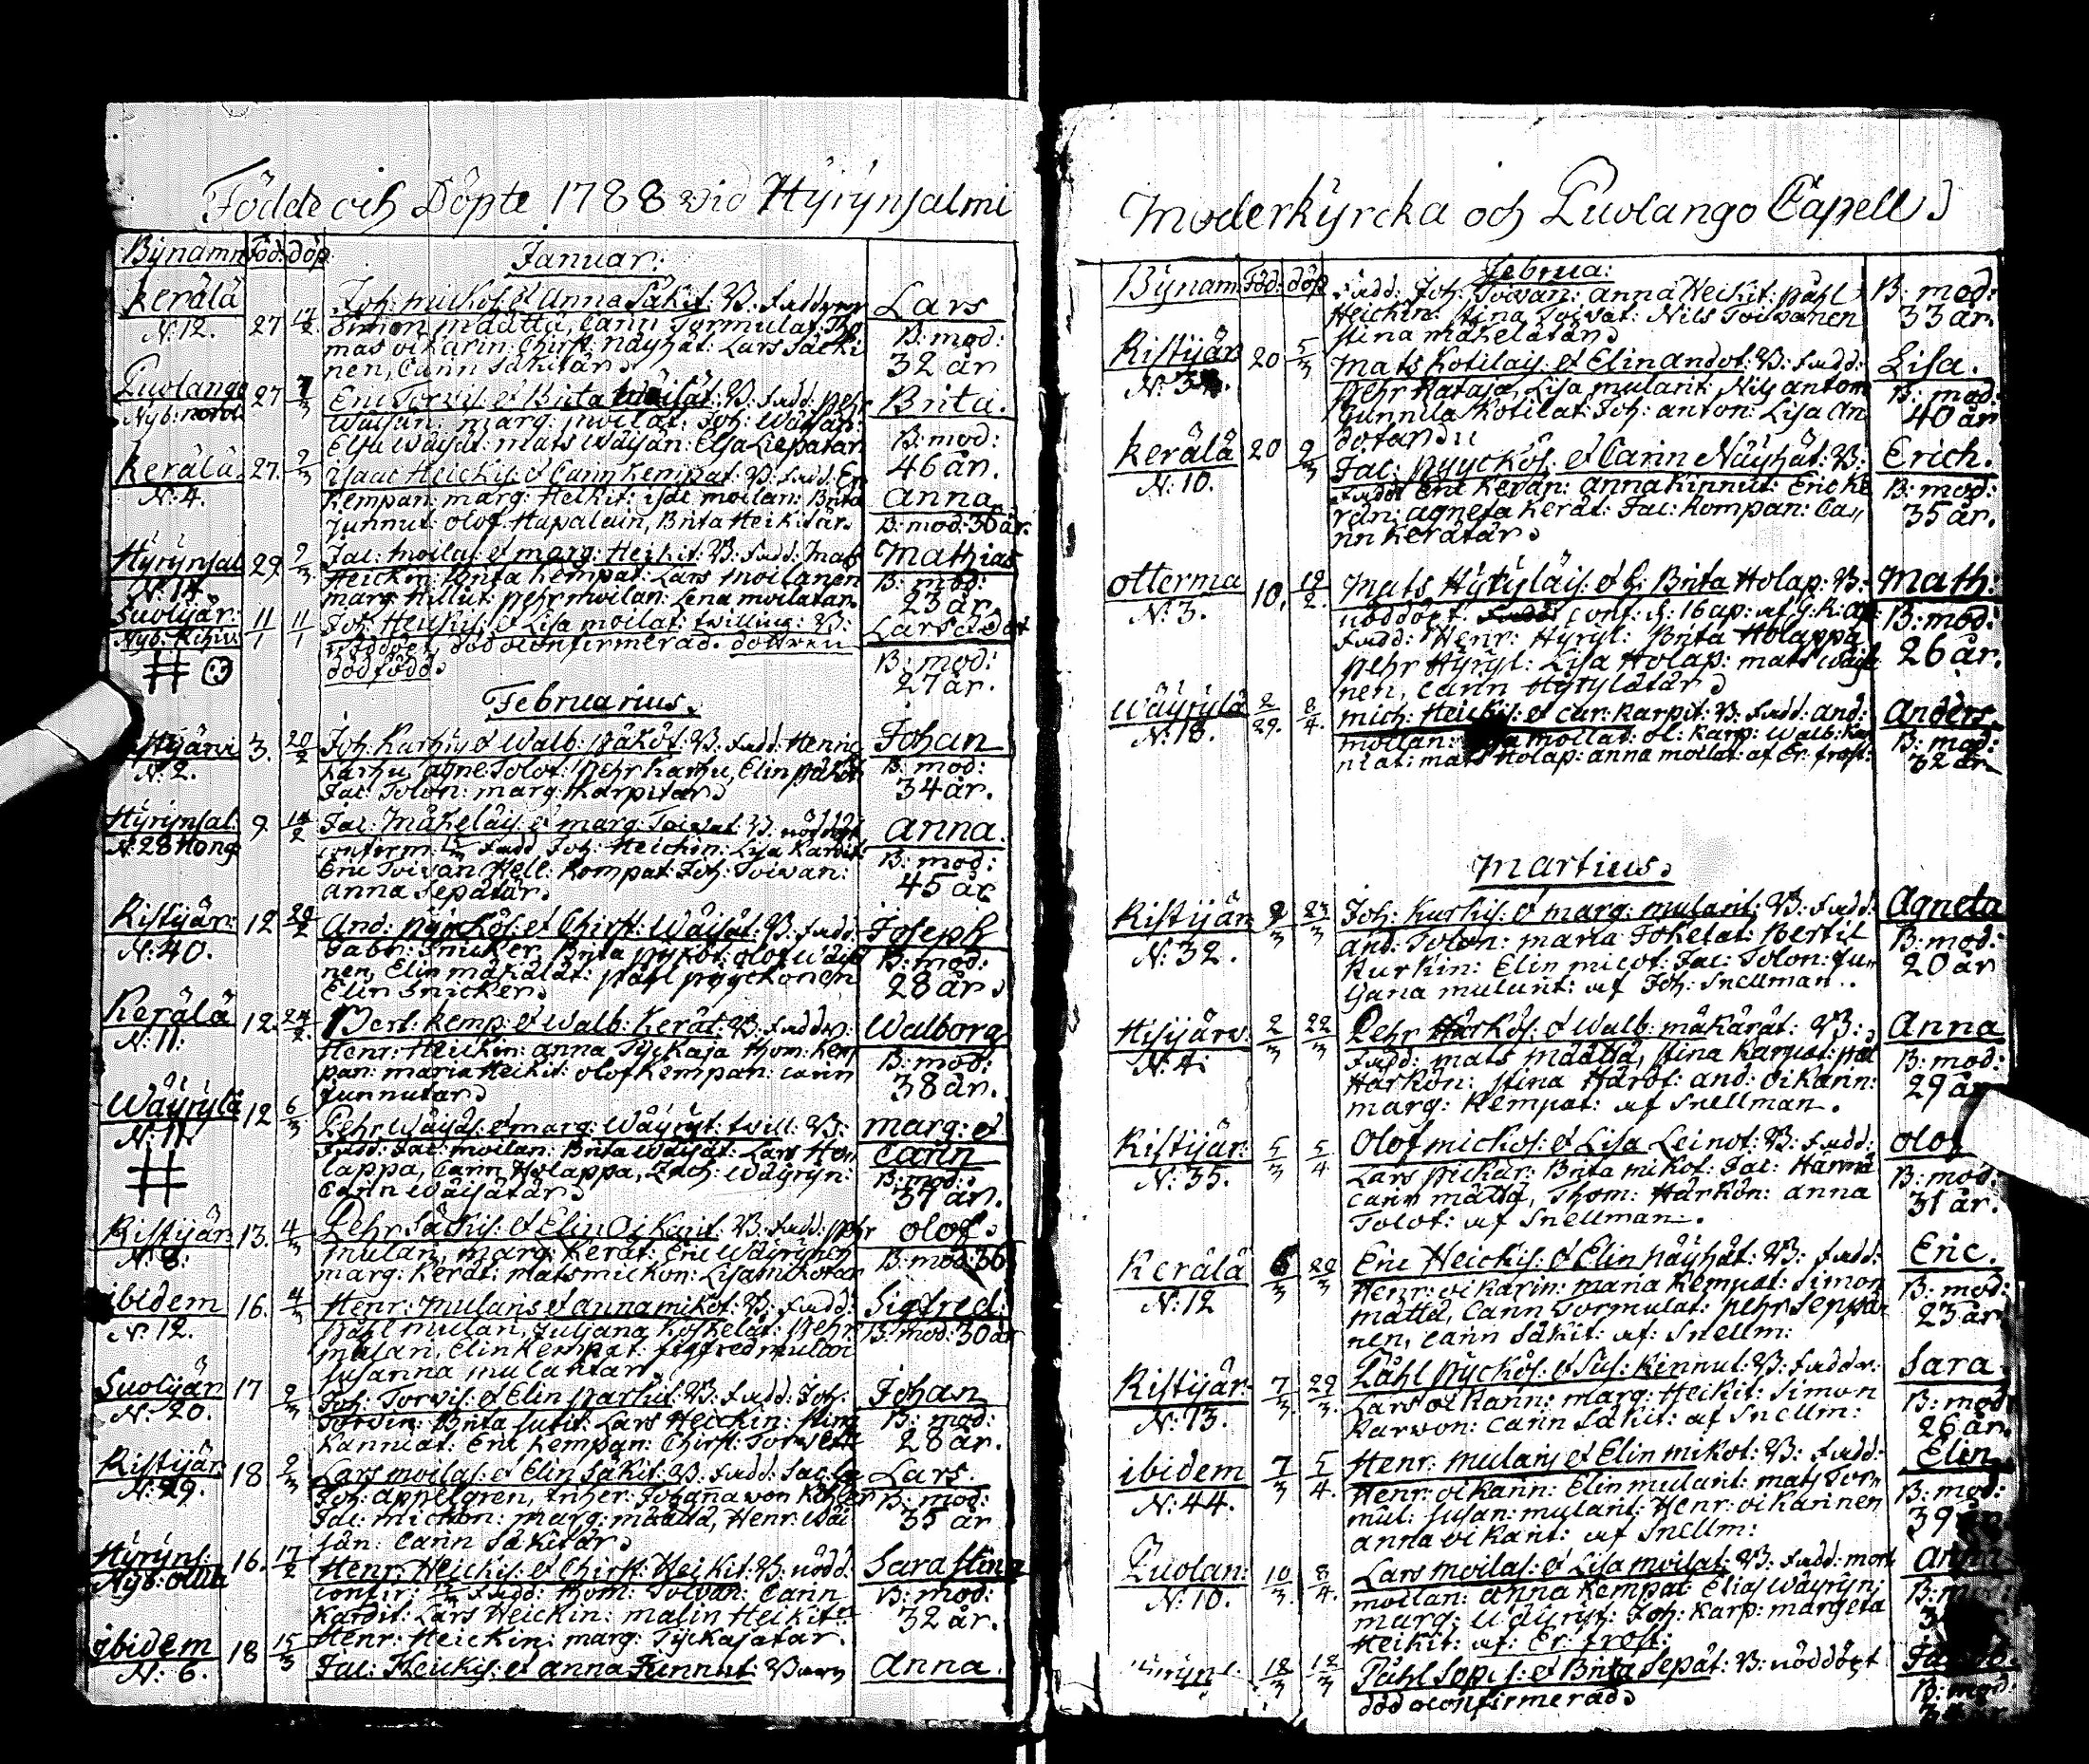 Födde och Döpte 1788 vid Hÿrÿnsalmi
Bÿnamn Föd: döp
Januar:
Kerälä
N:12. 27 17/2
Joh: mickos: et Anna Säkit: B: fadd
Simon määttä, Carin Tormulat: Tho
mas oikarin: Chirst: näÿhät: Lars Säcki
nen, Carin Säkitär
Lars
B: mod:
32 år
Puolango
Nÿb: 27 7/3
Eric Torvis: et Brita Wäisät: B: fadd: pehr
Wäisän: marg: moilat: Joh: Wäisän:
Elsa Wäisät: mats Wäisän: Elsa Liepatar
Brita.
B: mod:
46 år.
Kerälä
N: 4. 27. 2/3
isaac Heickis: et Carin Kempat: B: fadd: Er
Kempan: marg: Heikit: isac moilan: Brita
Junnut: olof Hapalain, Brita Heikitär
anna
B: mod: 30 år.
Hÿrÿnsal
N: 14 29 2/3
Jac: moilas: et marg: Heikit: B: fadd: Mats
Heickin: Brita Kempat: Lars moilanen
marg: Hillut: pehr moilan: Lena moilatar
Mathias
B: mod:
23 år
Suolijär:
11/1 11/1
Joh: Heickis: et Lisa moilat: twilling: B:
nöddöpt, död oconfirmerad. dottren
dödfödd
Lars
B: mod:
27 år.
Februarius.
N: 2. 3. 20/2
Joh: Karhis: et Walb: päköt: B: fadd: Henric
Karhu, agne: Tolot: pehr Karhu, Elin päköt
Jac: Tolon: marg: Karpitar
Johan
B: mod:
34 år.
Hÿrÿnsal:
N: 28 Hong 9
Jac: Mäkeläis: et marg: Toivat: B: nöddöpt
conferm: fadd Joh: Heickin: Lisa Kardit:
Eric Toivan Hell: Kompat: Joh: Toivan:
anna Sepätär
anna.
B: mod:
45 år
Ristijär:
N: 40. 12
And: pÿÿckös: et Chirst: Wäisät: B: fadd:
Gabr: Snicker, Brita pÿÿköt: olof Wäisä
nen, Elin mäkälät: påhl pÿÿckönen
Elin Snicker
Joseph
B: mod:
28 år
Kerälä
N: 11. 12. 24/2
Bert: Kemp: et Walb: Kerät: B: faddr:
Henr: Heickin: anna Tÿckaja thom: Kem
pan: maria Heikit: olof Kempan: carin
Junnutar
Walborg
B: mod:
38 år.
Wäÿrÿlä
N: 11 12 6/3
Pehr Wäisäs: et marg: Wäÿrÿt: twill: B:
fadd: Jac: moilan: Brita Wäisät: Lars Ho
lappa, Carin Holappa, Zach: Wäÿrÿn:
Carin Wäisätär
marg: et
Carin
B: mod:
37 år.
Ristijär
N: 8. 13. 4/3
Pehr Säckis: et Elin Oikarit: B: fadd: pehr
mulari, marg: Kerät: Eric Wäÿrÿnen
marg: Kerät: mats mickon: Lisa mikotar
olof
B: mod: 36
ibidem
N: 12. 16. 4/3
Henr: mularis et anna mikot: B: fadd:
påhl mulari, Juljana Koskelat: pehr
mulari, Elin Kempat: sigfred mulari
susanna mularitar
Sigfred:
B: mod: 30 år
Suolijär
N: 20. 17 2/3
Joh: Torvis: et Elin Karhut: B: fadd: Joh:
Torvin: Brita sutit: Lars Heickin: stina
Kanniat: Eric Kempan: Chirst: Torvetar
Johan
B: mod:
28 år.
Ristijär
N: 29. 18 2/3
Lars moilas: et Elin Säkit: B: fadd: Sac: L
Joh: appelgren, Friher: Johana von Köhler
Jac: mickon: marg: määttä, Henr: Wäi
sän: Carin Säkitär
Lars.
B: mod:
35 år
Hÿrÿns:
Nÿb: 16. 17/2
Henr: Heickis: et Chirst: Heikit: B: nödd:
confir: fadd: thom: Toivan: Carin
Kardit: Lars Heickin: malin Heikit:
Henr: Heickin: marg: Tÿckajatar.
Sara stina
B: mod:
32 år.
ibidem
N: 6. 18 15/3
Jac: Heickis: et anna Junnut: Barn
Anna.
Moderkÿrcka och Puolango Capell
Bÿnam: Föd: döp
Februa:
Fadd: Joh: Toivan: anna Heikit: påhl
Heickin: stina Toivat: Nils Toivanen
stina mäkelätär
B: mod:
33 år.
Ristijär
20 5/3
Mats Kotilais: et Elin andot: B: fadd:
Pehr Hataja, Lisa mularit: Nils anton
Gunnila Kotilat: Joh: anton: Lisa An
dotar
Lisa.
B: mod:
40 år
Kerälä
N: 10. 20 9/3
Jac: pÿÿckös: et Carin Näÿhät: B:
fadd: Eric Kerän: anna Kinnut: Eric Ke
rän: agneta Kerät: Jac: Kompan: Ca
rin Kerätär
Erich.
B: mod:
35 år.
otterma
N: 3. 10. 19/2
Mats Hÿrÿläis: et H: Brita Holap: B:
nöddöpt conf: d: 16 ap: af
fadd: Henr: Hÿrÿl: Brita Holappa
pehr Hÿrÿl: Lisa Holap: mats Wäisä
nen, Carin Hÿrÿlätär
Math:
B: mod:
26 år.
Wäÿrÿlä
N: 18. 2/29. 8/4.
mich: Heickis: et Car: Karpit: B: fadd: and:
moilan: moilat: ol: Karp: Walb: Ka
niat: mats Holap: anna moilat: af Er: frost:
Anders
B: mod:
32 år
Martius.
Ristijär
N: 32. 23/3
Joh: Kurkis: et marg: mularit: B: fadd:
and: Tolon: maria Jokelat: Bertil
Kurkin: Elin micot: Jac: Tolon: Ju
ljana mularit: af Joh: Snellman.
Agneta
B: mod:
20 år
Hisijärv:
N: 4: 2/3 22/3
Pehr Härkös: et Walb: mäkärät: B:
fadd: mats määttä, stina Karpat:
Härkön: stina Häröt: and: oikarin:
marg: Kempat: af Snellman.
Anna
B: mod:
29 år
Ristijär:
N: 35. 5/3 5/4
Olof mickos: et Lisa Leinot: B: fadd:
Lars pickar: Brita mikot: Jac: Härmä
carin mättä, Thom: Härkön: anna
Tolot: af Snellman.
olof
B: mod.
31 år.
Kerälä
N: 12 6/3 29/3
Eric Heickis: et Elin näÿhät: B: fadd:
Henr: oikarin: maria Kempat: Simon
mättä, Carin Tormulat: pehr Seppä
nen, Carin Säkit: af: Snellm:
Eric.
B: mod:
23 år
Ristijär:
N: 13. 7/3. 29/3.
Påhl pÿckös: et Sus: Kennut: B: faddr:
Lars oikarin: marg: Heikit: Simon
Karvon: Carin Säkit: af Snellm:
Sara
B: mod
26 år.
ibidem
N: 44. 7/3 5/4.
Henr: mularis et Elin mikot: B: fadd:
Henr: oikarin: Elin mularit: mats Tor
mul: susan: mularit: Henr: oikarinen
anna oikarit: af Snellm:
Elin
B: mod:
39 år
Puolan:
N: 10. 10/3. 8/4.
Lars moilas: et Lisa moilat: B: fadd: mart
moilan: anna Kempat: Elias Wäÿrÿn:
marg: Wäÿrÿt: Joh: Karp: margeta
Heikit: af: Er: frost:
B:
12/3 12/3
Påhl Sopis: et Brita Sepät: B: nöddöpt
död oconfirmerad
B: mod: